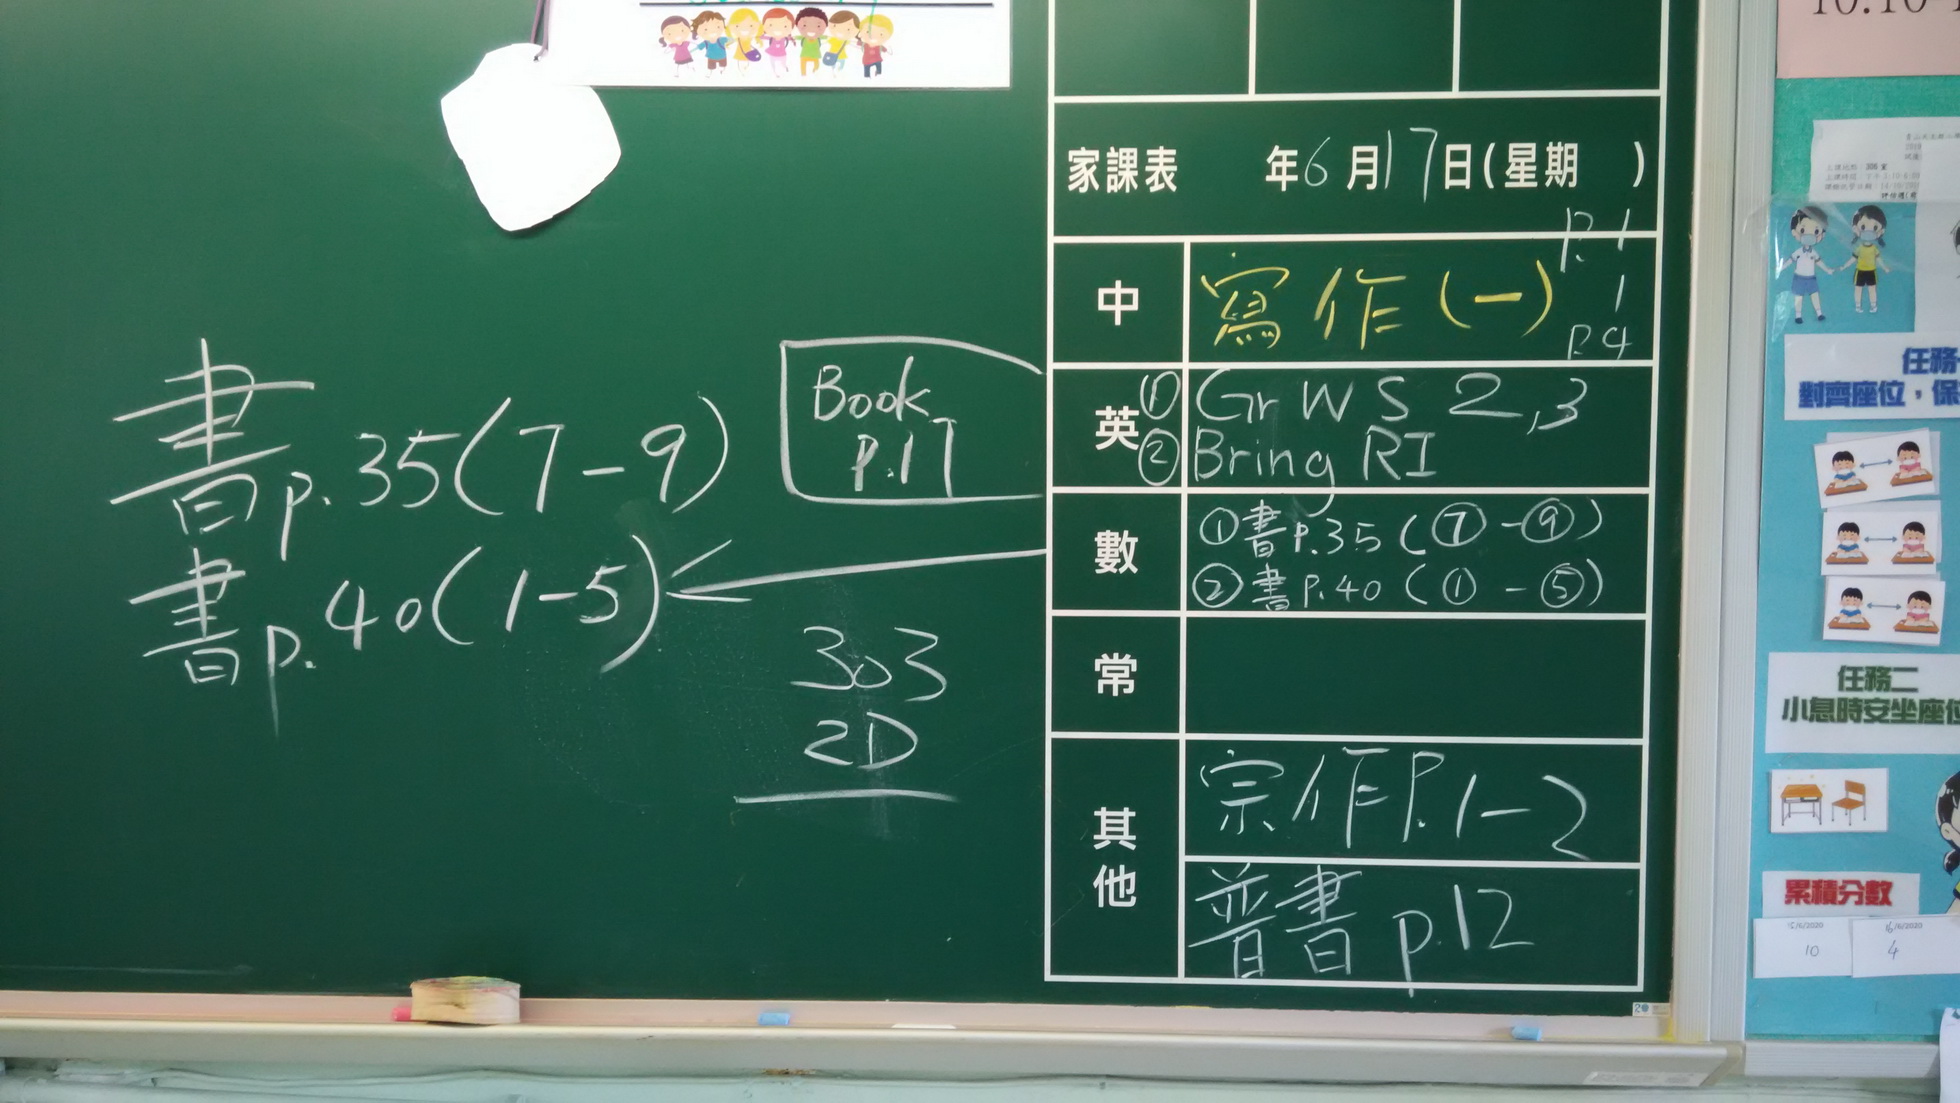 書p.35(7-9)
書p.40(1-5)
Book
P.17
303
2D
家課表 年6月17日(星期 )
中 寫作(一) P.1
|
P.4
英 ① Gr WS 2,3
② Bring RI
數 ①書P.35(⑦-⑨)
②書P.40(①-⑤)
常
其他 宗作P.1-2
普書p.12
10:10-1
任務
對齊座位,保
任務二
小息時安坐座位
累積分數
15/6/2020
10
16/6/2020
4